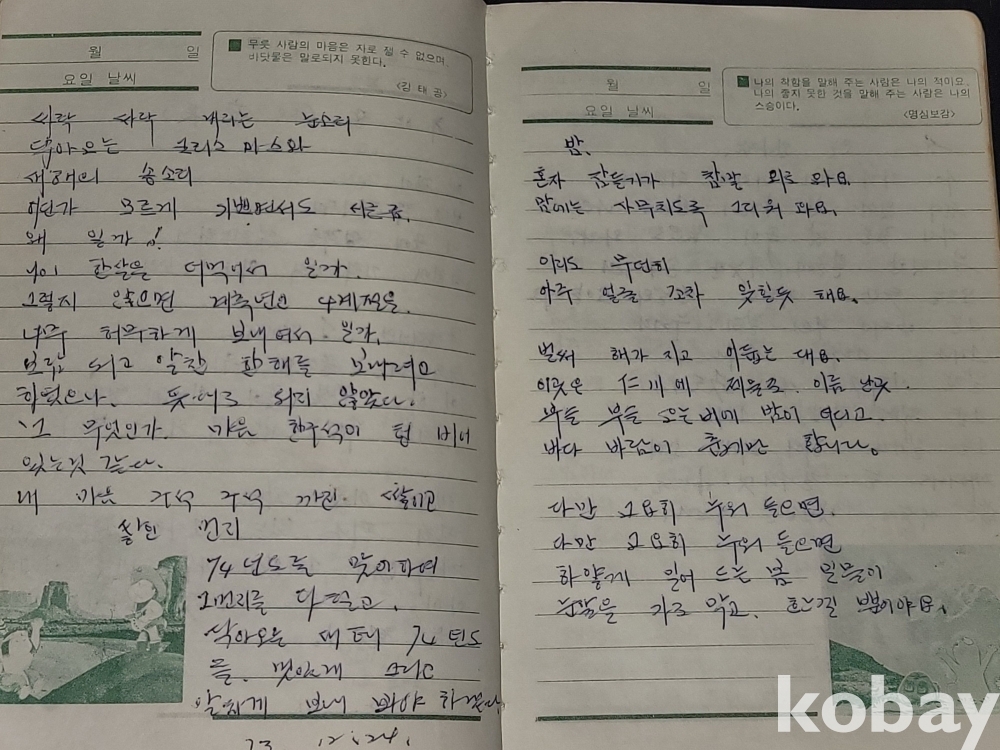 월 일
요일 날씨
무릇 사람의 마음은 자로 잴 수 없으며,
바닷물은 말로되지 못한다.
<강태공>
싸락 싸락 내리는 눈소리
닥아오는 크리스마스와
새해의 종소리
어딘가 모르게 기쁘면서도 서글픔.
왜 일까!
나이 한살을 더먹어서 일까.
그렇지 않으면 계축년의 4계절을
너무 허무하게 보내어서 일까.
보람 되고 알찬 한해를 보내려고
하였으나. 뜻대로 되지 않았다.
그 무엇인가. 마음 한구석이 텅 비어
있는것 같다.
내 마음 구석 구석 까진 쌓이고
쌓인 먼지
74년도를 맞이하여
그먼지를 다 털고.
닥아오는 74년도
를. 멋있게 그리고
알차게 보내 봐야 하겠다
73. 12. 24.
월 일
요일 날씨
나의 착함을 말해 주는 사람은 나의 적이요,
나의 좋지 못한 것을 말해 주는 사람은 나의
스승이다.
<명심보감>
밤.
혼자 잠들기가 참말 외로 와요.
맘에는 사무치도록 그리워 와요.
이리도 무던히
아주 얼굴 조차 잊힐듯 해요.
벌써 해가 지고 어둡는 대요.
이곳은 仁川에 제물포 이름 난곳.
부슬 부슬 오는비에 밤이 더디고.
바다 바람이 춥게만 합니다.
다만 고요히 누워 들으면.
다만 고요히 누워 들으면
하얗게 밀어 드는 봄 밀물이
눈앞을 가로 막고. 흐느낄 뿐이야요.
kobay